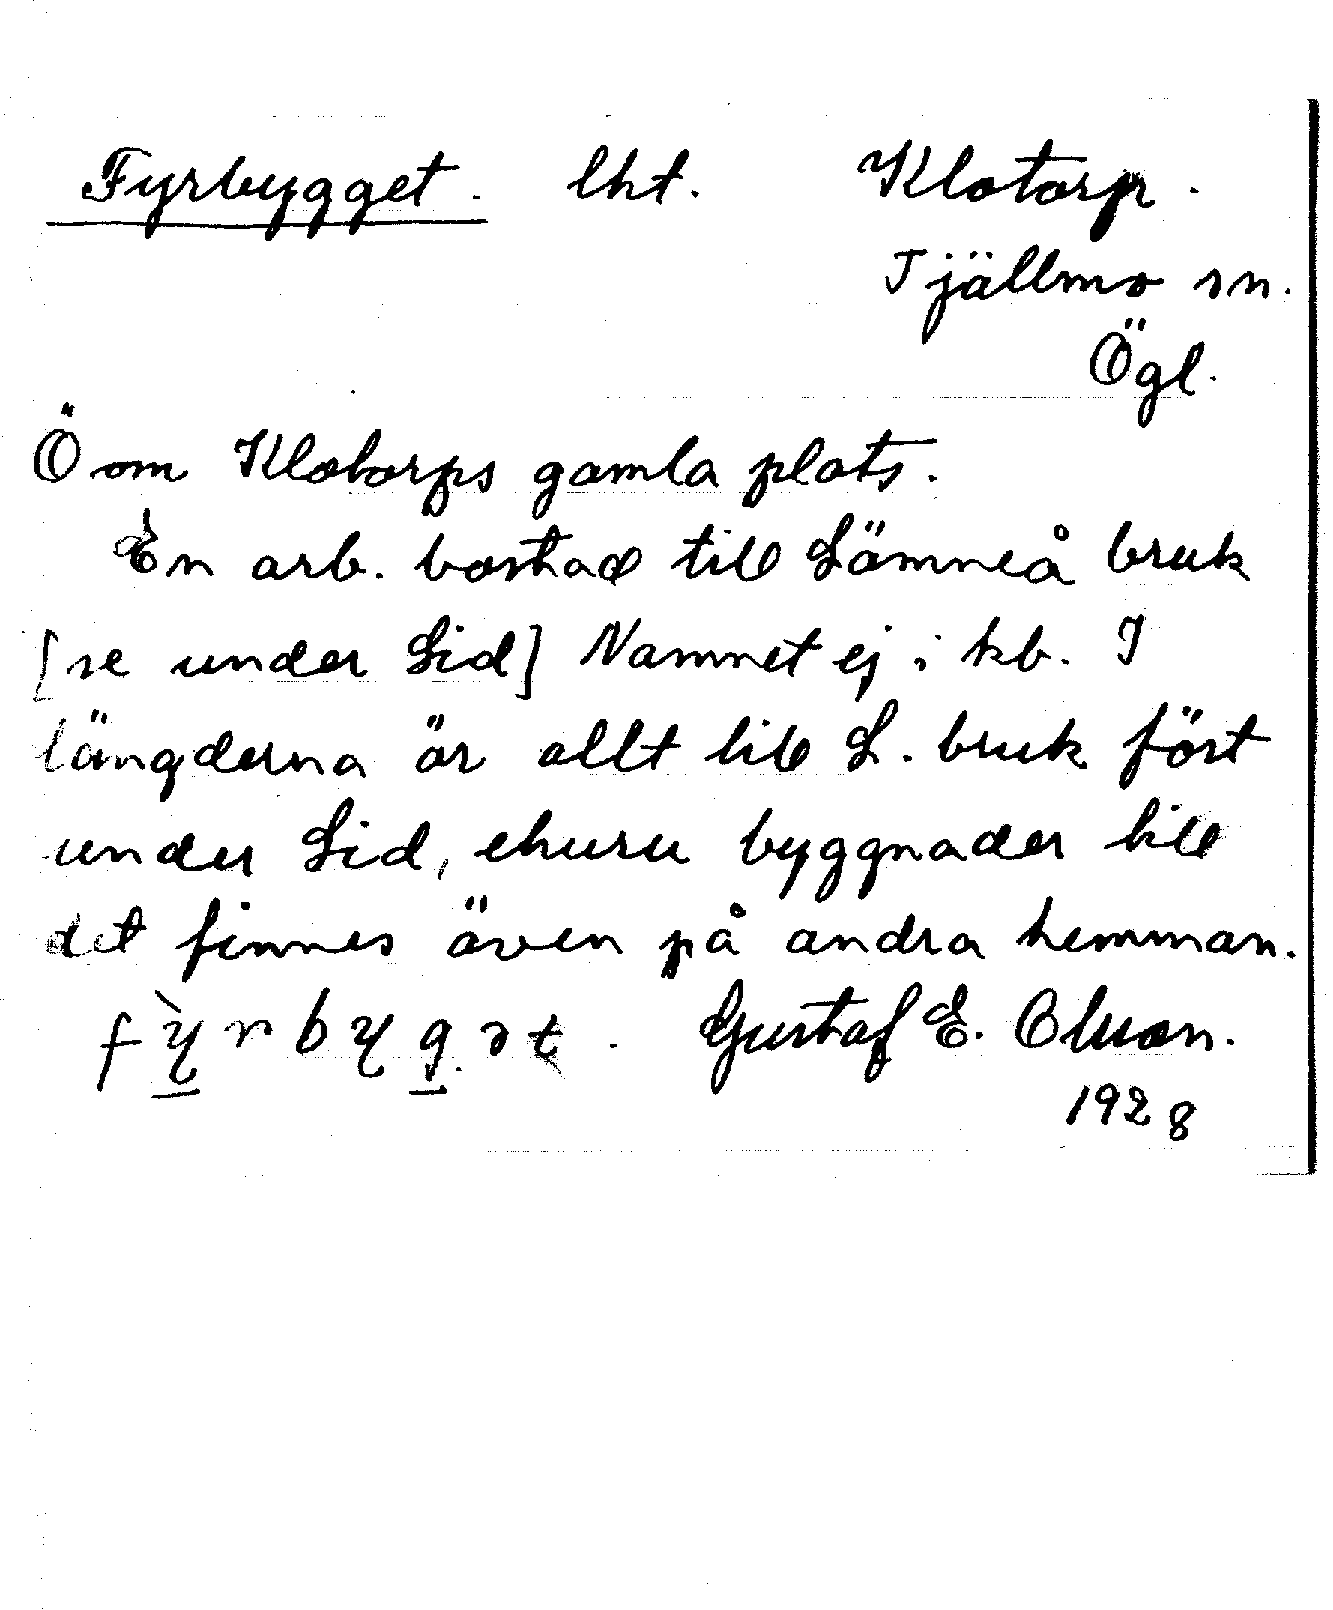 Fyrbygget. lht. Klotorp.
Tjällmo sn.
Ögl.
Ö om Klotorps gamla plats.
En arb. bostad till Lämneå bruk
[se under Lid] Namnet ej i kb. I
längderna är allt till L. bruk fört
under Lid, ehuru byggnader till
det finnes även på andra hemman.
fỳrbygət. Gustaf E. Olsson.
1928